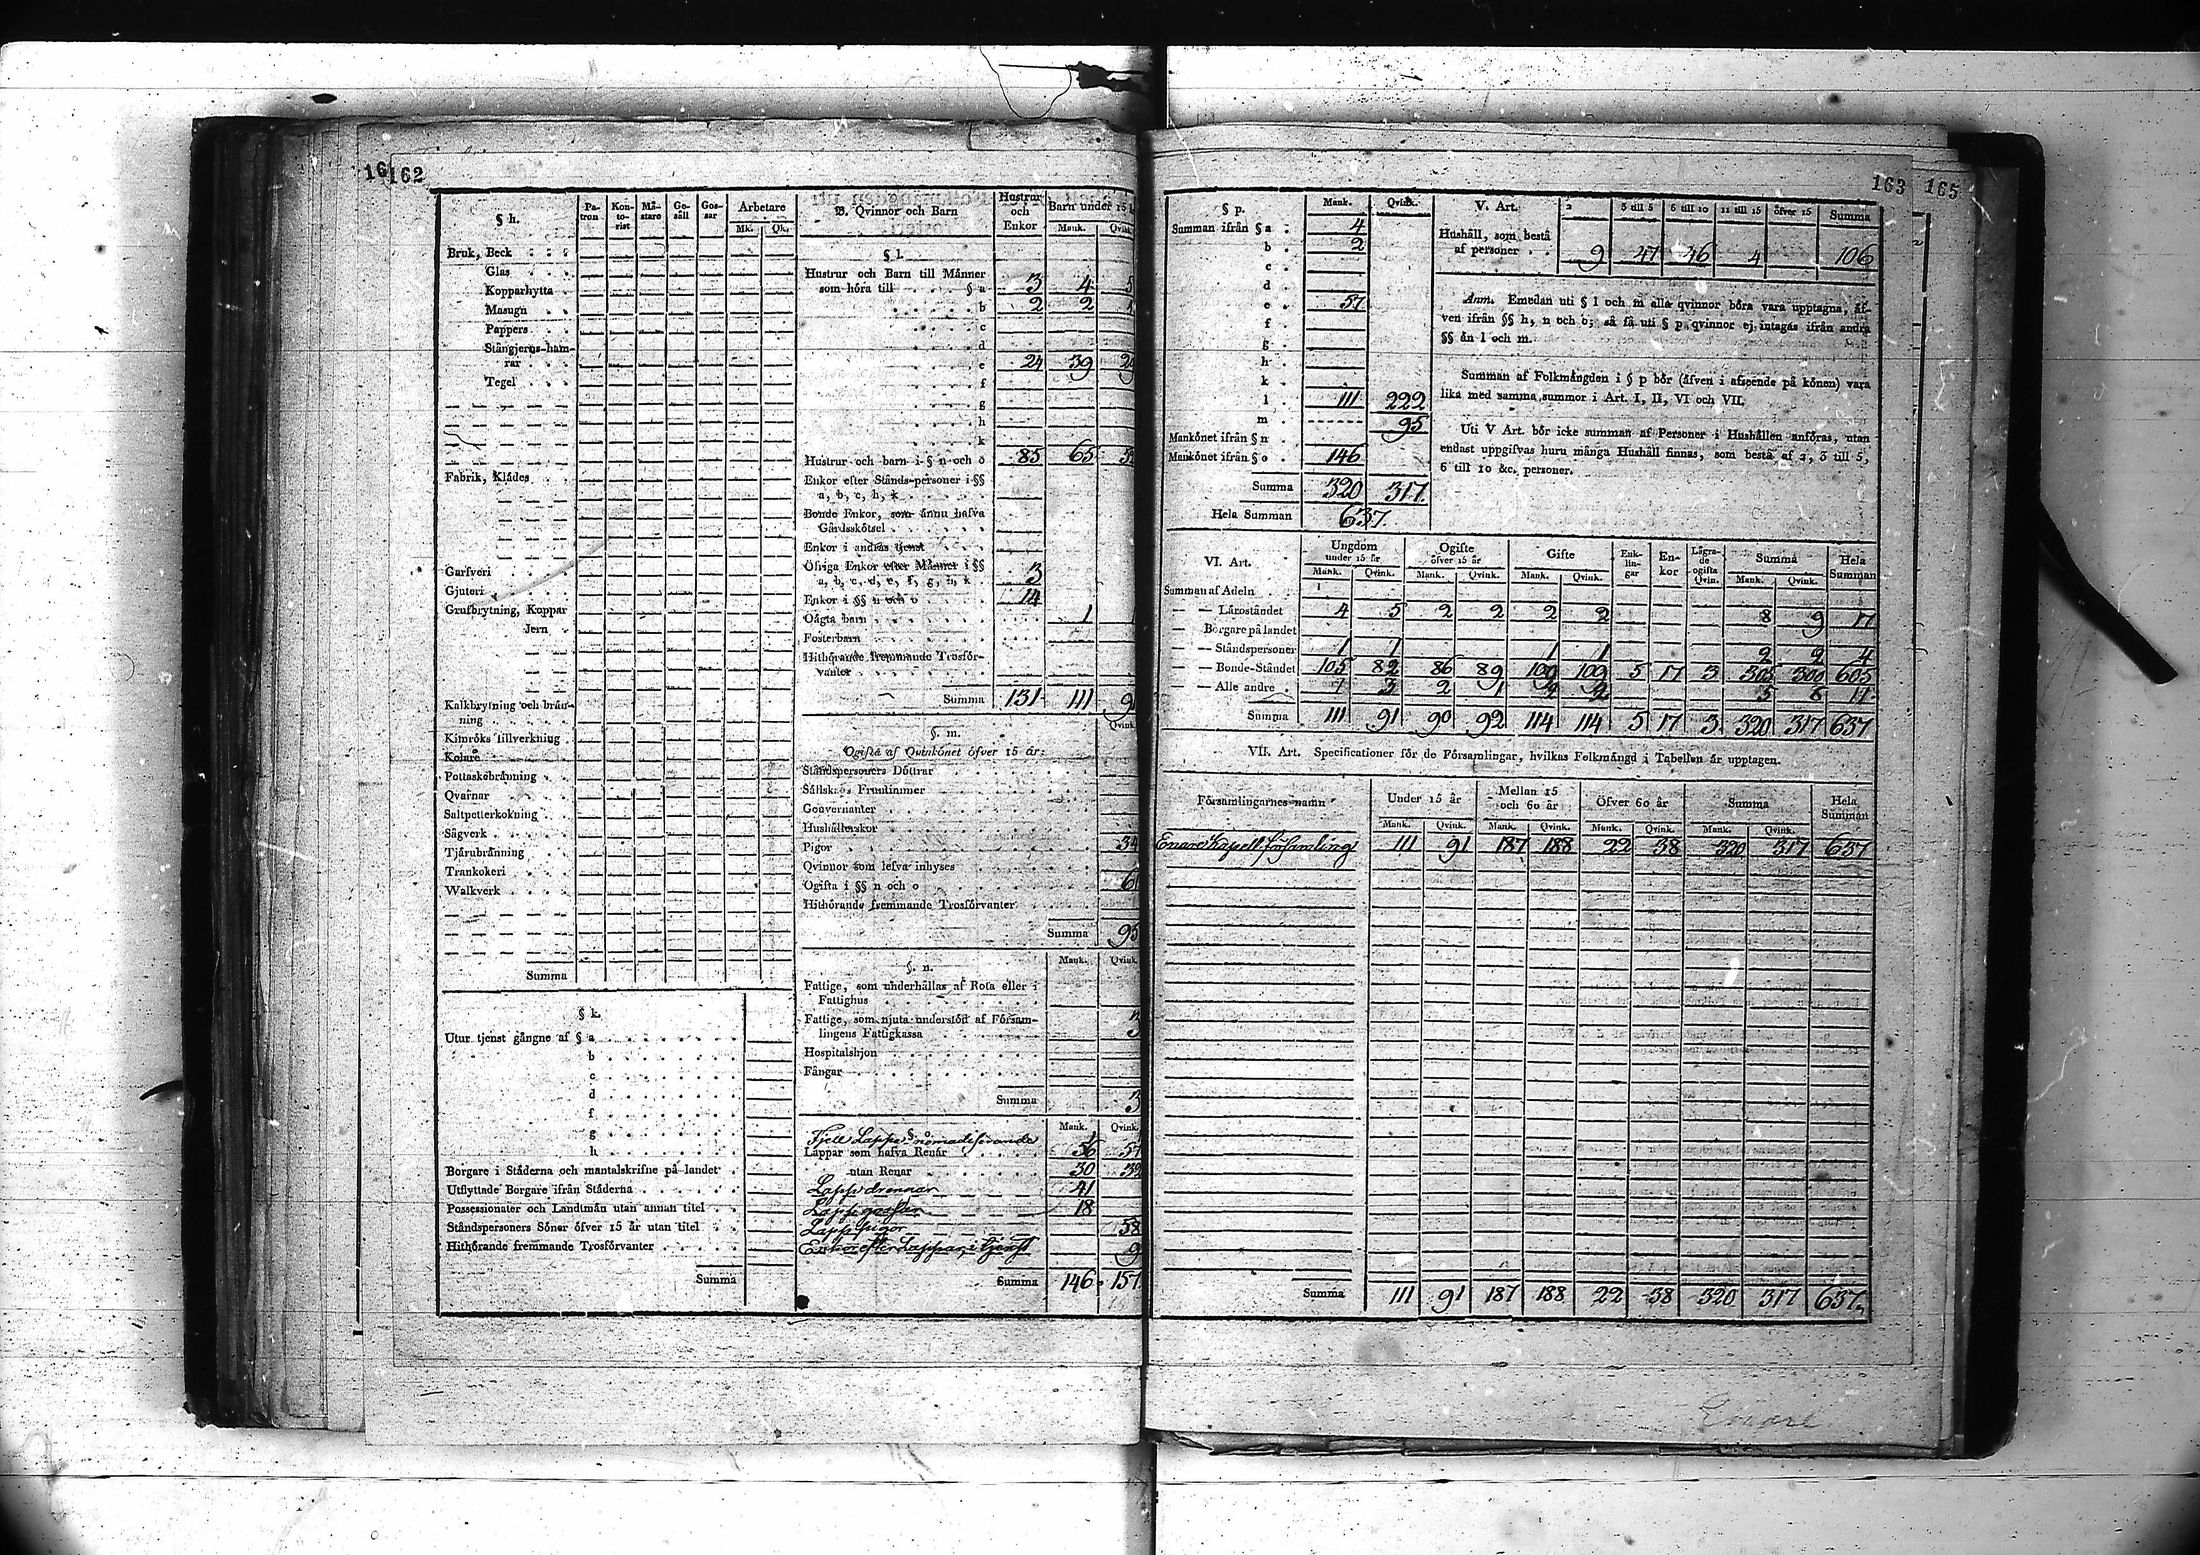 162
§ h.
Pa- tron
Kon- to- rist
Må- stare
Ge- säll
Gos- sar
Arbetare
Mk. Qk.
Bruk, Beck
Glas
Kopparhytta
Masugn
Pappers
Stångjerns-ham-
rar
Tegel
Fabrik, Klädes
Garfveri
Gjuteri
Grufbrytning, Koppar
Jern
Kalkbrytning och brän-
ning
Kimröks tillverkning
Kolare
Pottaskebränning
Qvarnar
Saltpetterkokning
Sågverk
Tjärubränning
Trankokeri
Walkverk
Summa
§ k.
Utur tjenst gångne af § a
b
c
d
f
g
h
Borgare i Städerna och mantalskrifne på landet
Utflyttade Borgare ifrån Städerna
Possessionater och Landtmän utan annan titel
Ståndspersoners Söner öfver 15 år utan titel
Hithörande fremmande Trosförvanter
Summa
B. Qvinnor och Barn
Hustrur och Enkor
Barn under 15
Mank. Qvink
§ l.
Hustrur och Barn till Männer
som höra till § a 3 4 5
b 2 2
c
d
e 24 39
f
g
h
k
Hustrur och barn i § n och o 85 65
Enkor efter Stånds-personer i §§
a, b, c, h, k
Bonde Enkor, som ännu hafva
Gårdsskötsel
Enkor i andras tjenst
Öfriga Enkor efter Männer i §§
a, b, c, d, e, f, g, h, k 3
Enkor i §§ n och o 14
Oägta barn 1
Fosterbarn
Hithörande fremmande Trosför-
vanter
Summa 131 111 91
§. m. Qvink.
Ogifta af Qvinkönet öfver 15 år:
Ståndspersoners Döttrar
Sällskaps Fruntimmer
Gouvernanter
Hushållerskor
Pigor 34
Qvinnor som lefva inhyses
Ogifta i §§ n och o 61
Hithörande fremmande Trosförvanter
Summa 95
§. n. Mank. Qvink
Fattige, som underhållas af Rota eller i
Fattighus
Fattige, som njuta understöd af Försam-
lingens Fattigkassa 3
Hospitalshjon
Fångar
Summa 3
§ o Mank. Qvink.
Fjell Lappar nomadiserande 1 1
Lappar som hafva Renar 56 57
utan Renar 30 32
Lapp drengar 41
Lapp gossar 18
Lapp pigor 58
Enkor efter Lappar, i tjenst 9
Summa 146 157
163 165
§ p. Mank. Qvink.
Summan ifrån § a 4
b 2
c
d
e 57
f
g
h
k
l 111 222
m 95
Mankönet ifrån § n
Mankönet ifrån § o 146
Summa 320 317
Hela Summan 637.
V. Art. 2 3 till 5 6 till 10 11 till 15 öfver 15 Summa
Hushåll, som bestå
af personer 9 47 46 4 106
Anm. Emedan uti § l och m alla qvinnor böra vara upptagna, äf-
ven ifrån §§ h, n och o; så få uti § p qvinnor ej intagas ifrån andra
§§ än l och m.
Summan af Folkmängden i § p bör (äfven i afseende på könen) vara
lika med samma summor i Art. I, II, VI och VII.
Uti V Art. bör icke summan af Personer i Hushållen anföras, utan
endast uppgifvas huru många Hushåll finnas, som bestå af 2, 3 till 5,
6 till 10 &c. personer.
VI. Art.
Ungdom under 15 år
Ogifte öfver 15 år
Gifte
Enk- lin- gar
En- kor
Lägra- de ogifta Qvin.
Summa
Hela Summan
Mank. Qvink. Mank. Qvink. Mank. Qvink. Mank. Qvink.
Summan af Adeln
— — Läroståndet 4 5 2 2 2 2 8 9 17
— Borgare på landet
— — Ståndspersoner 1 1 1 1 2 2 4
— — Bonde-Ståndet 105 82 86 89 109 109 5 17 3 305 300 605
— — Alle andre 1 3 2 1 2 2 5 6 11
Summa 111 91 90 92 114 114 5 17 3 320 317 637
VII. Art. Specificationer för de Församlingar, hvilkas Folkmängd i Tabellen är upptagen.
Församlingarnes namn
Under 15 år
Mellan 15 och 60 år
Öfver 60 år
Summa
Hela Summan
Mank. Qvink. Mank. Qvink. Mank. Qvink. Mank. Qvink.
Enare Kapell församling 111 91 187 188 22 38 320 317 637
Summa 111 91 187 188 22 38 320 317 637
Enare